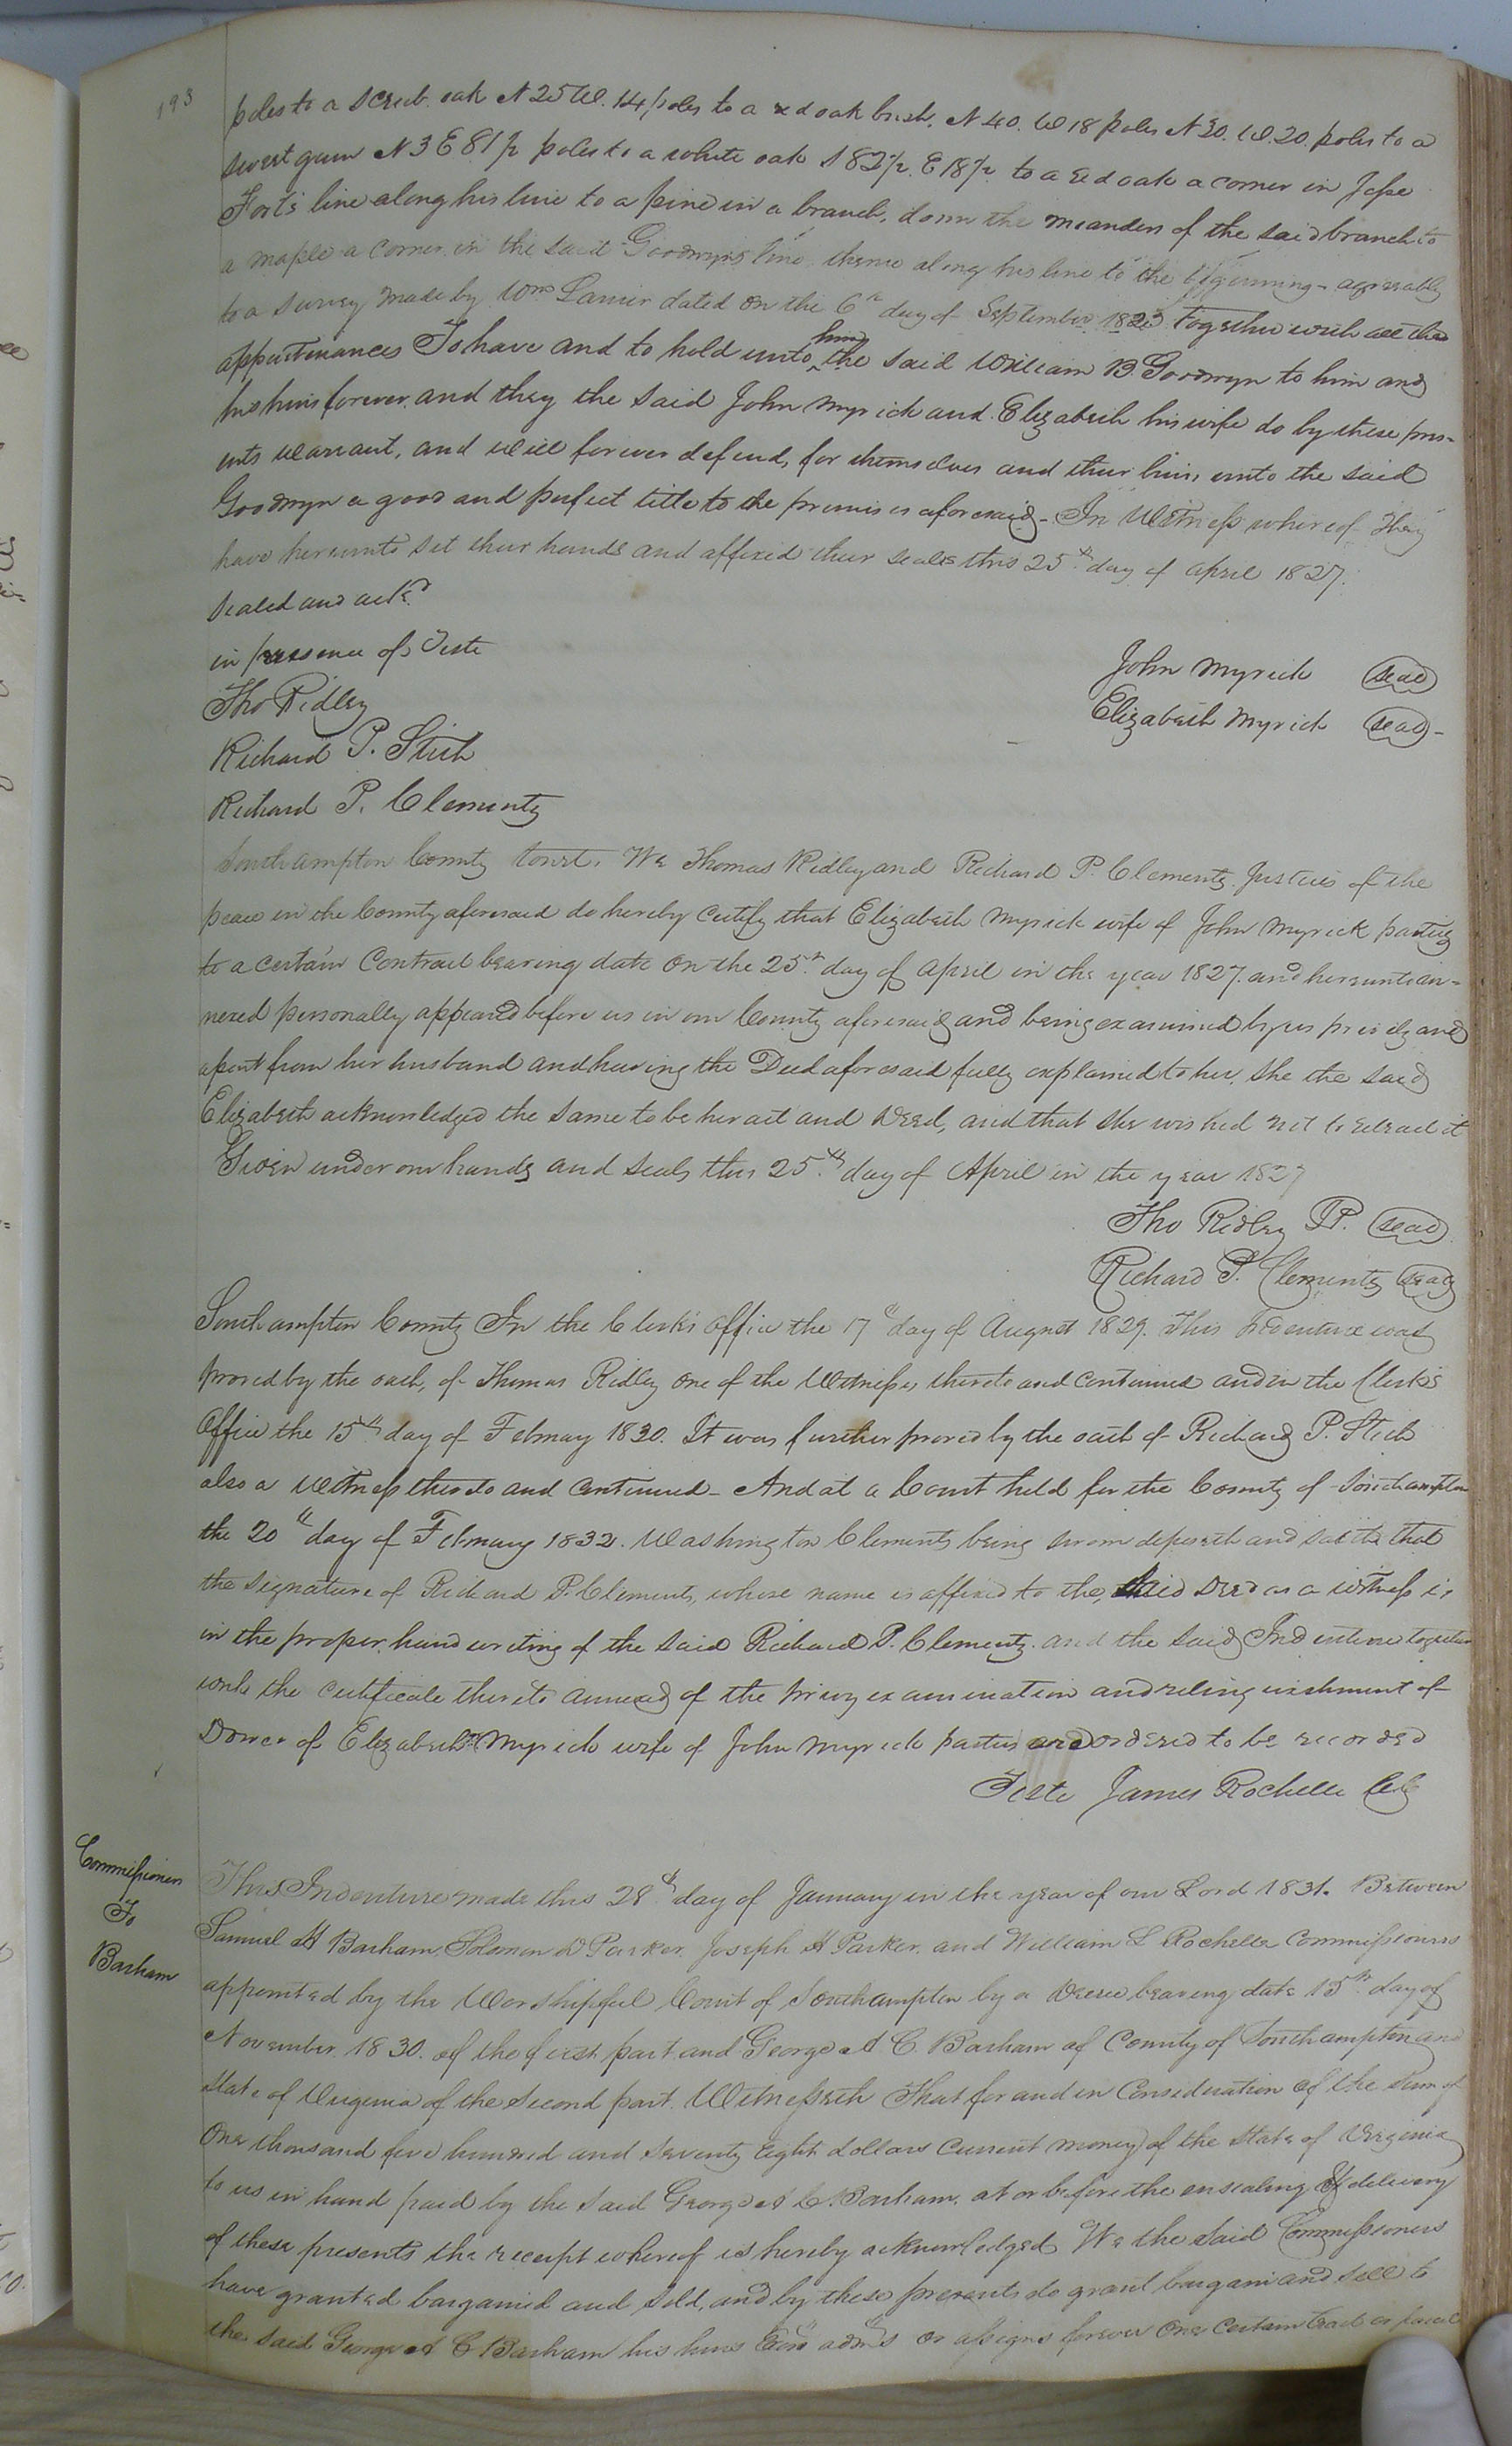 193
poles to a scrub oak N 25 W. 14 poles to a red oak bush, N 40. W 18 poles N 30. W. 20 poles to a
sweet gum N 3 E 81½ poles to a white oak S 82½ E 18½ to a red oak a corner in Jesse
Fort's line along his line to a pine in a branch, down the meanders of the said branch to
a maple a corner in the said Goodwyns line thence along his line to the beginning - agreeably
to a survey made by Wm Lanier dated on the 6th day of September 1823 together with all the
appurtenances To have and to hold unto him the said William B. Goodwyn to him and
his heirs forever. and they the said John Myrick and Elizabeth his wife do by these pres-
ents warrant, and will forever defend, for themselves and their heirs, unto the said
Goodwyn a good and perfect title to the premises aforesaid - In Witness whereof They
have hereunto set their hands and affixed their seals this 25th day of April 1827.
Sealed and ackd
in presence of Teste
Tho Ridley
Richard P. Stith
Richard P. Clements
John Myrick seal
Elizabeth Myrick seal -
Southampton County Court. We Thomas Ridley and Richard P. Clements Justices of the
peace in the County aforesaid do hereby certify that Elizabeth Myrick wife of John Myrick parties
to a certain Contract bearing date on the 25th day of April in the year 1827. and hereunto an-
nexed personally appeared before us in our County aforesaid and being examined by us privily and
apart from her husband and having the Deed aforesaid fully explained to her, she the said
Elizabeth acknowledged the same to be her act and Deed, and that she wished not to retract it
Given under our hands and seals this 25th day of April in the year 1827
Tho Ridley JP. seal
Richard P. Clements seal
Southampton County In the Clerks office the 17th day of August 1829. This Indenture was
proved by the oath, of Thomas Ridley one of the Witnesses thereto and continued and in the Clerk's
Office the 15th day of February 1830. It was further proved by the oath of Richard P. Stith
also a Witness thereto and Continued - And at a Court held for the County of Southampton
the 20th day of February 1832. Washington Clements being sworn deposeth and saith that
the signature of Richard P. Clements, whose name is affixed to the said Deed as a witness is
in the proper hand writing of the said Richard P. Clements. and the said Indenture together
with the certificate thereto annexed of the privy examination and relinquishment of
Dower of Elizabeth Myrick wife of John Myrick parties and ordered to be recorded
Teste James Rochelle
Commissioners
To
Barham
This Indenture made this 28th day of January in the year of our Lord 1831. Between
Samuel H Barham, Solomon D Parker, Joseph H Parker. and William L Rochelle Commissioners
appointed by the Worshipful Court of Southampton by a Decree bearing date 15th day of
November 1830. of the first part and George A. C. Barham of County of Southampton and
State of Virginia of the second part. Witnesseth That for and in Consideration of the sum of
One thousand five hundred and seventy eight dollars current money of the State of Virginia
to us in hand paid by the said George A C. Barham. at or before the ensealing & delivery
of these presents the receipt whereof is hereby acknowledged We the said Commissioners
have granted bargained and sold, and by these presents do grant bargain and sell to
the said George A C Barham his heirs Exors admrs or assigns forever One Certain tract or parcel